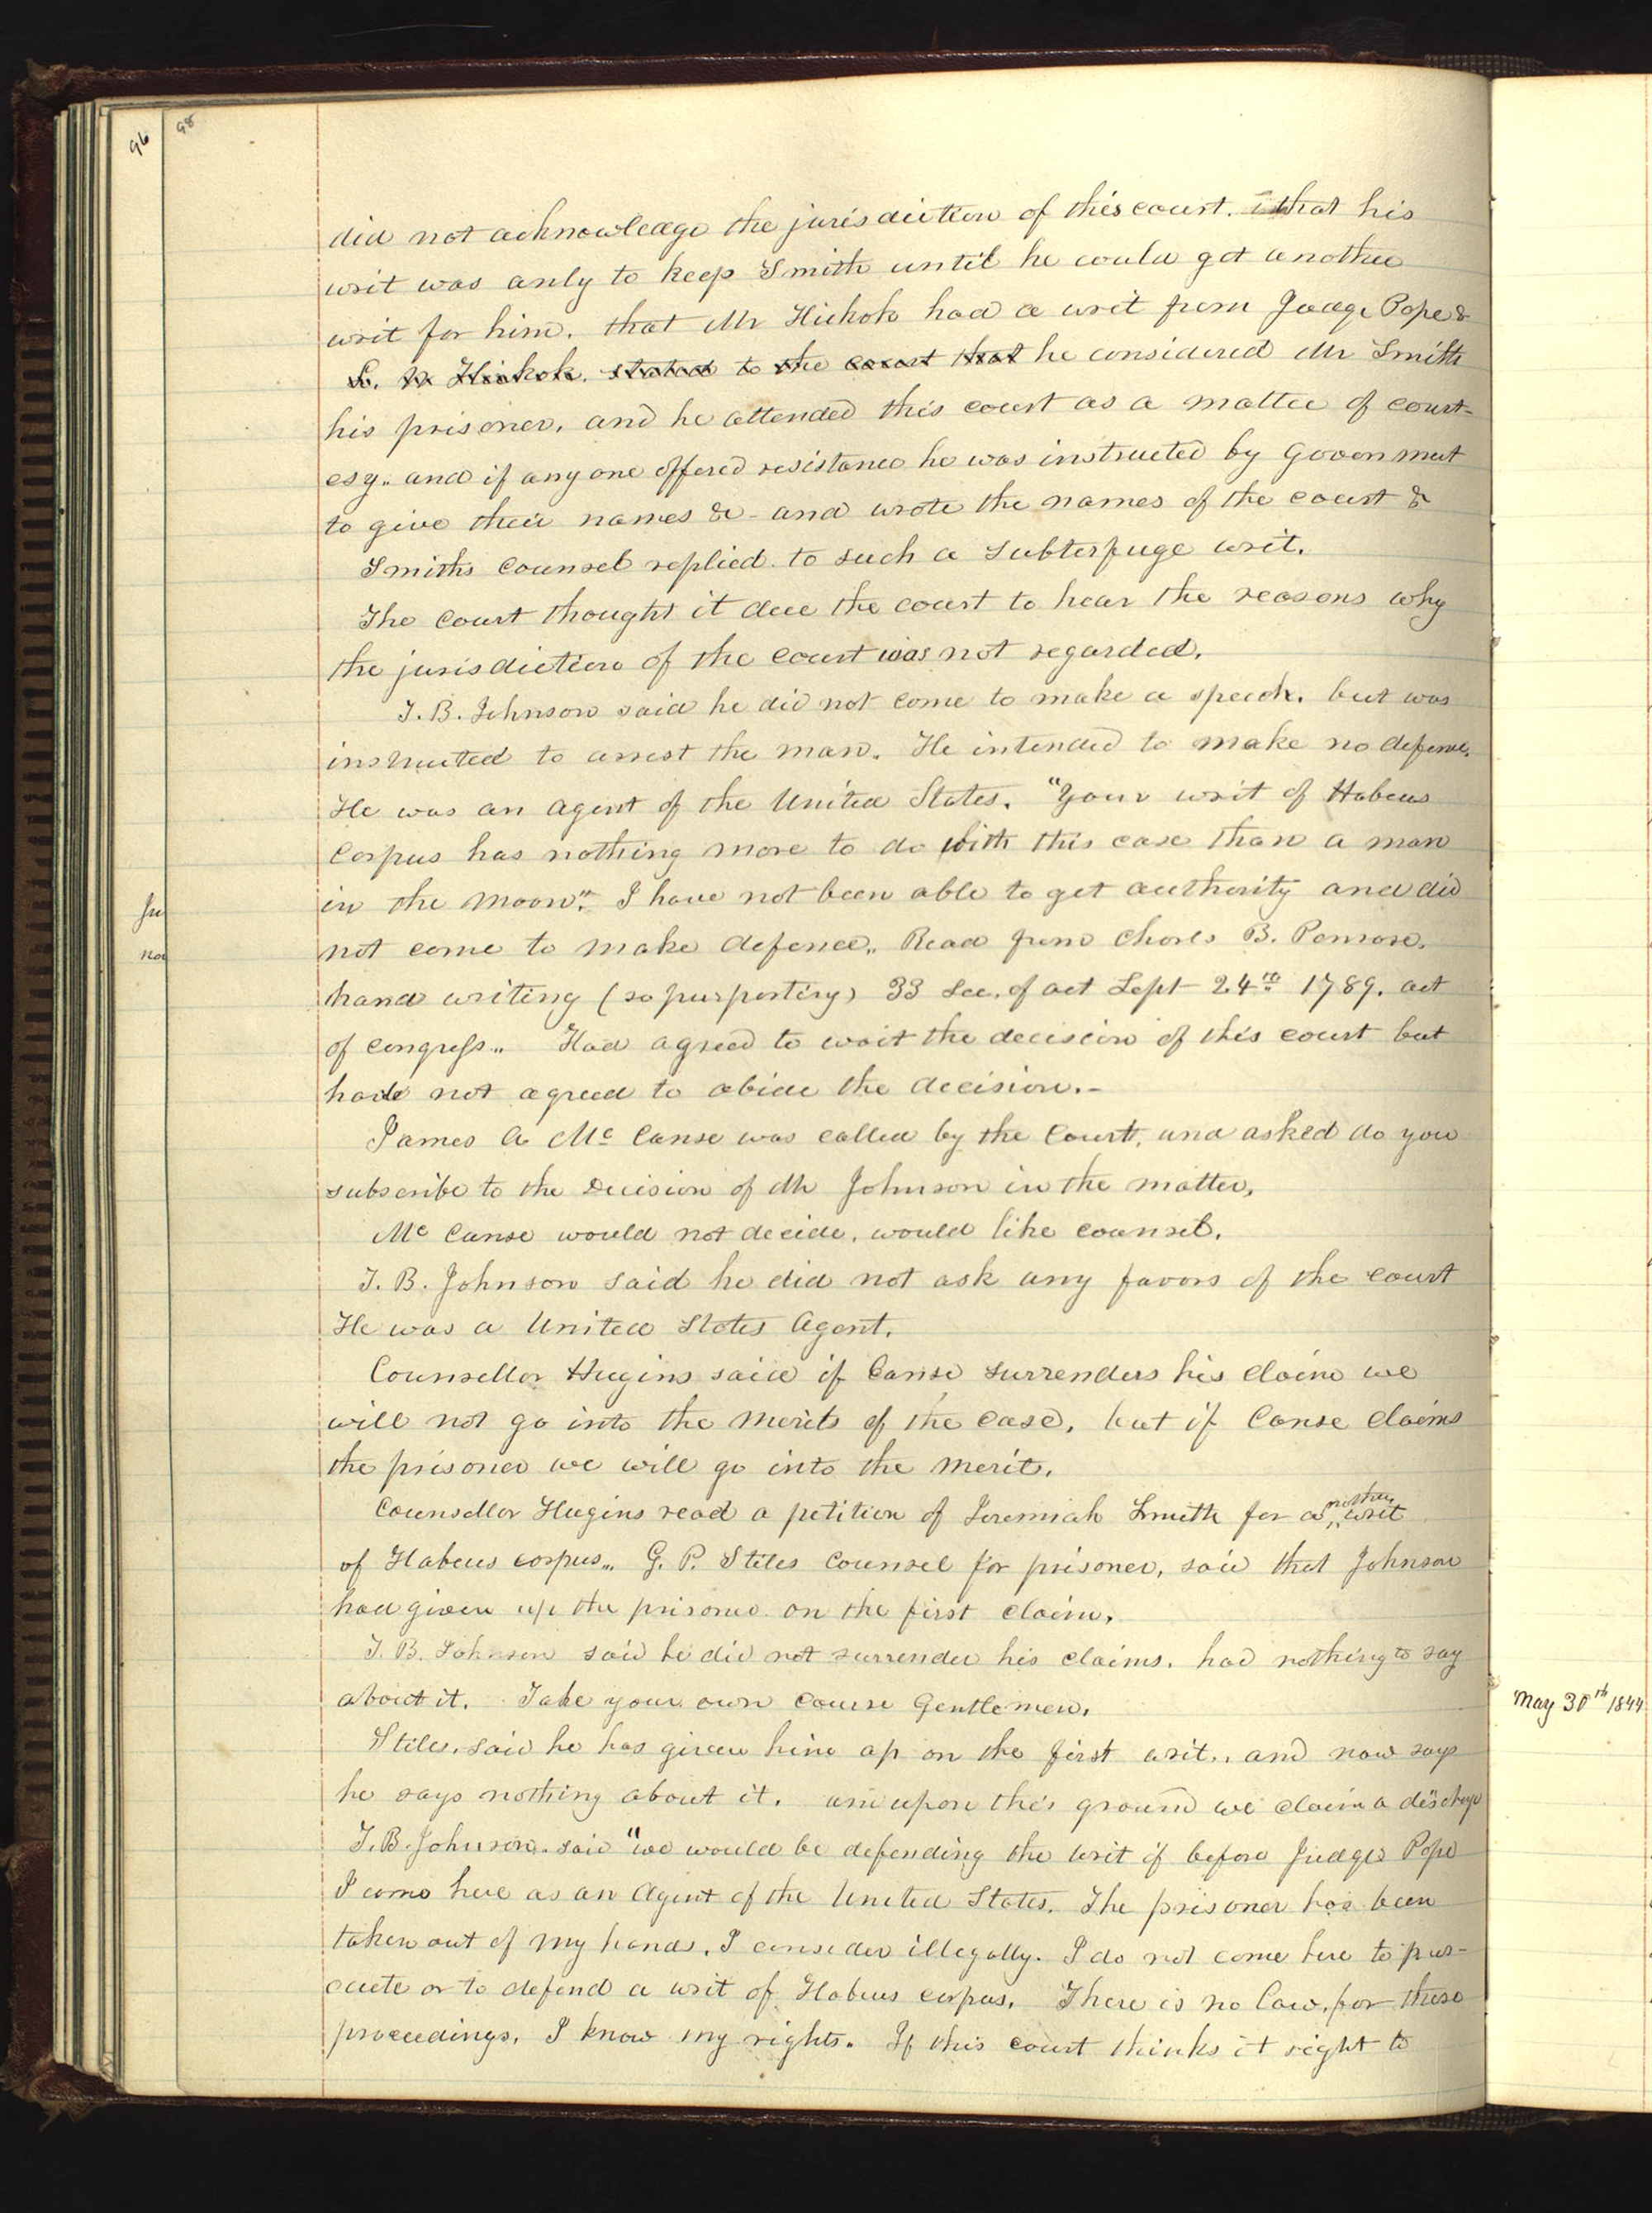 96
98
did not acknowledge the jurisdiction of this court. that his
writ was only to keep Smith until he could get another
writ for him. that Mr Hickok had a writ from Judge Pope &
S. N Hickok. stated to the court that he considered Mr Smith
his prisoner, and he attended this court as a matter of court-
esy.. and if any one offered resistance he was instructed by Government
to give their names &c- and wrote the names of the court &
Smiths Counsel replied. to such a subterfuge writ.
The Court thought it due the court to hear the reasons why
the jurisdiction of the Court was not regarded.
T. B. Johnson said he did not come to make a speech. but was
instructed to arrest the man. He intended to make no defence.
He was an agent of the United States. "Your writ of Habeus
Corpus has nothing more to do with this case than a man
in the moon". I have not been able to get authority and did
not come to make defence.. Read from Charls B. Penrose.
hand writing (so purporting) 33 Sec. of act Sept 24th 1789. act
of congress.. Had agreed to wait the decision of this court but
have not agreed to abide the decision.-
James A Mc Canse was called by the Court, and asked do you
subscribe to the Decision of Mr Johnson in the matter,
Mc Canse would not decide, would like counsel.
T. B. Johnson said he did not ask any favors of the court
He was a United States Agent.
Counsellor Hugins said if Canse surrenders his claim we
will not go into the merits of the case, but if Canse claims
the prisoner we will go into the merit.
Counsellor Hugins read a petition of Jeremiah Smith for a nother writ
of Habeus corpus.. G. P. Stiles Counsel for prisoner, said that Johnson
had given up the prisoner on the first claim.
T. B. Johnson said he did not surrender his claims. had nothing to say
about it. Take your own course Gentlemen.
Stiles. said he has given him up on the first writ., and now says
he says nothing about it. and upon this ground we claim a discharge
T. B. Johnson. said "we would be defending the writ if before Judge Pope
I come here as an Agent of the United States. The prisoner has been
taken out of my hands. I consider illegally. I do not come here to pros-
ecute or to defend a writ of Habeus corpus. There is no law, for these
proceedings. I know my rights. If this court thinks it right to
May 30th 1844